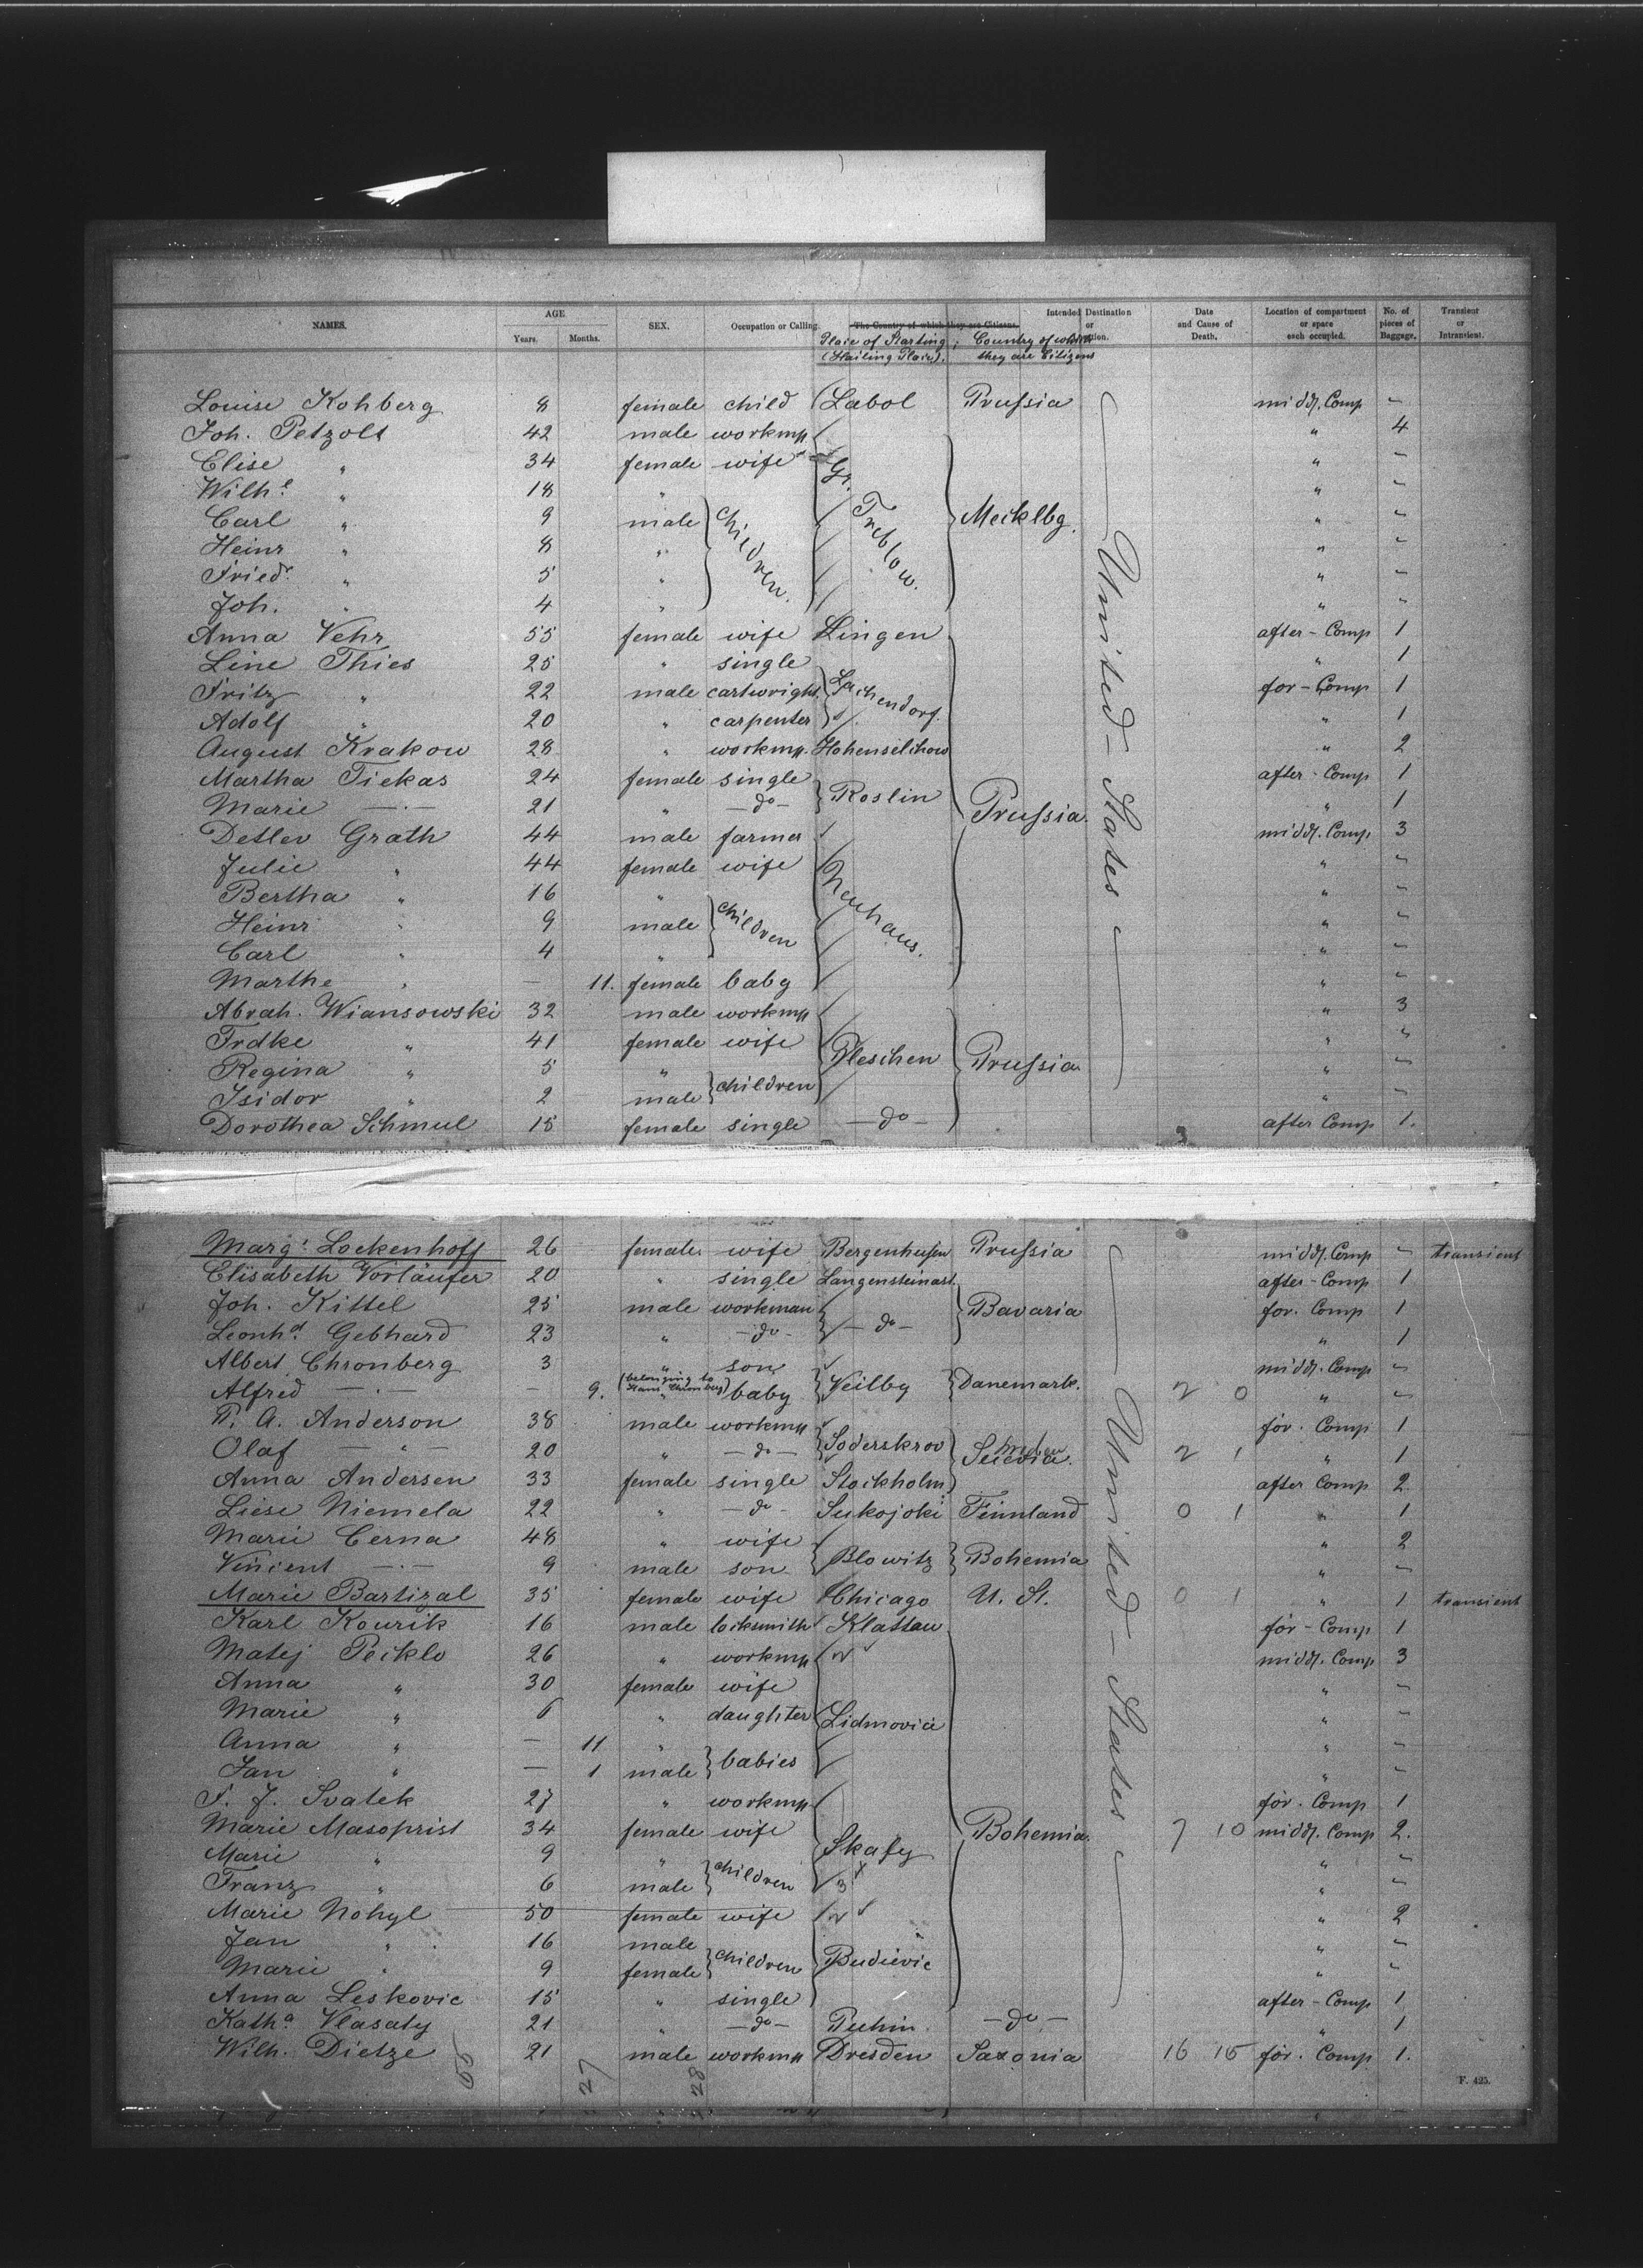 NAMES. AGE SEX. Occupation or Calling. The Country of which they are Citizens. Intended Destination or Date and Cause of Death. Location of compartment or space each occupied. No. of pieces of Baggage. Transient or Intransient.
Years. Months. Place of Starting; (Hailing Place). Country of which they are Citizens
Louise Kohberg 8 female child Labol Prussia midd. Comp "
Joh. Petzolt 42 male workmn " 4
Elise " 34 female wife Gr. Treblow. " "
Wilhe " 18 " " "
Carl " 9 male children. Mecklbg. " "
Heinr " 8 " " "
Friedr. " 5 " " "
Joh. " 4 " " "
Anna Vehr 55 female wife Lingen after-Comp 1
Line Thies 25 " single " 1
Fritz " 22 male cartwright Lachendorf. for-Comp 1
Adolf " 20 " carpenter " 1
August Krakow 28 " workmn. Hohenselchow " 2
Martha Tiekas 24 female single Roslin after-Comp 1
Marie —"— 21 " —do— Prussia. " 1
Detlev Grath 44 male farmer midd. Comp 3
Julie " 44 female wife Neuhaus. " "
Bertha " 16 " " "
Heinr " 9 male children " "
Carl " 4 " " "
Marthe " — 11. female baby " "
Abrah. Wiansowski 32 male workmn " 3
Frdke " 41 female wife Pleschen Prussia " "
Regina " 5 " children " "
Isidor " 2 male " "
Dorothea Schmul 15 female single —do— after Comp 1.
United-States
3
Margt. Lockenhoff 26 female wife Bergenhusen Prussia midd. Comp " transient
Elisabeth Vorläufer 20 " single Langensteinart after-Comp 1
Joh. Kittel 25 male workman —do— Bavaria for. Comp 1
Leonhd. Gebhard 23 " —do— " 1
Albert Chronberg 3 " son midd. Comp "
Alfred —"— — 9. (belonging to Hans Chronberg) " baby Veilby Danemark. 2 0 " "
P. A. Anderson 38 male workmn for. Comp 1
Olaf —"— 20 " —do— Soderskrov Suecia. 2 1 " 1
Anna Andersen 33 female single Stockholm after Comp 2
Liese Niemela 22 " —do— Sukojoki Finnland 0 1 " 1
Marie Cerna 48 " wife " 2
Vincent —"— 9 male son Blowitz Bohemia " "
Marie Bartizal 35 female wife Chicago U. St. 0 1 " 1 transient
Karl Kourik 16 male locksmith Klattau for-Comp 1
Matej Peiklo 26 " workmn midd. Comp 3
Anna " 30 female wife " "
Marie " 6 " daughter Lidmovice " "
Anna " — 11 " babies " "
Jan " — 1 male " "
F. J. Svatek 27 " workmn for. Comp 1
Marie Masoprist 34 female wife Bohemia. 7 10 midd. Comp 2.
Marie " 9 " children Skafy " "
Franz " 6 male 3 x " "
Marie Nohyl 50 female wife " 2
Jan " 16 male " "
Marie " 9 female children Budievic " "
Anna Leskovic 15 " single after-Comp 1
Katha Vlasaty 21 " —do— Puchin —do— " 1
Wilh. Dietze 21 male workmn Dresden Saxonia 16 15 for. Comp 1.
United-States
65 27 28
F. 425.